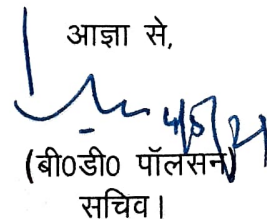 आज्ञा से,
(बी0डी0 पॉलसन)
सचिव।